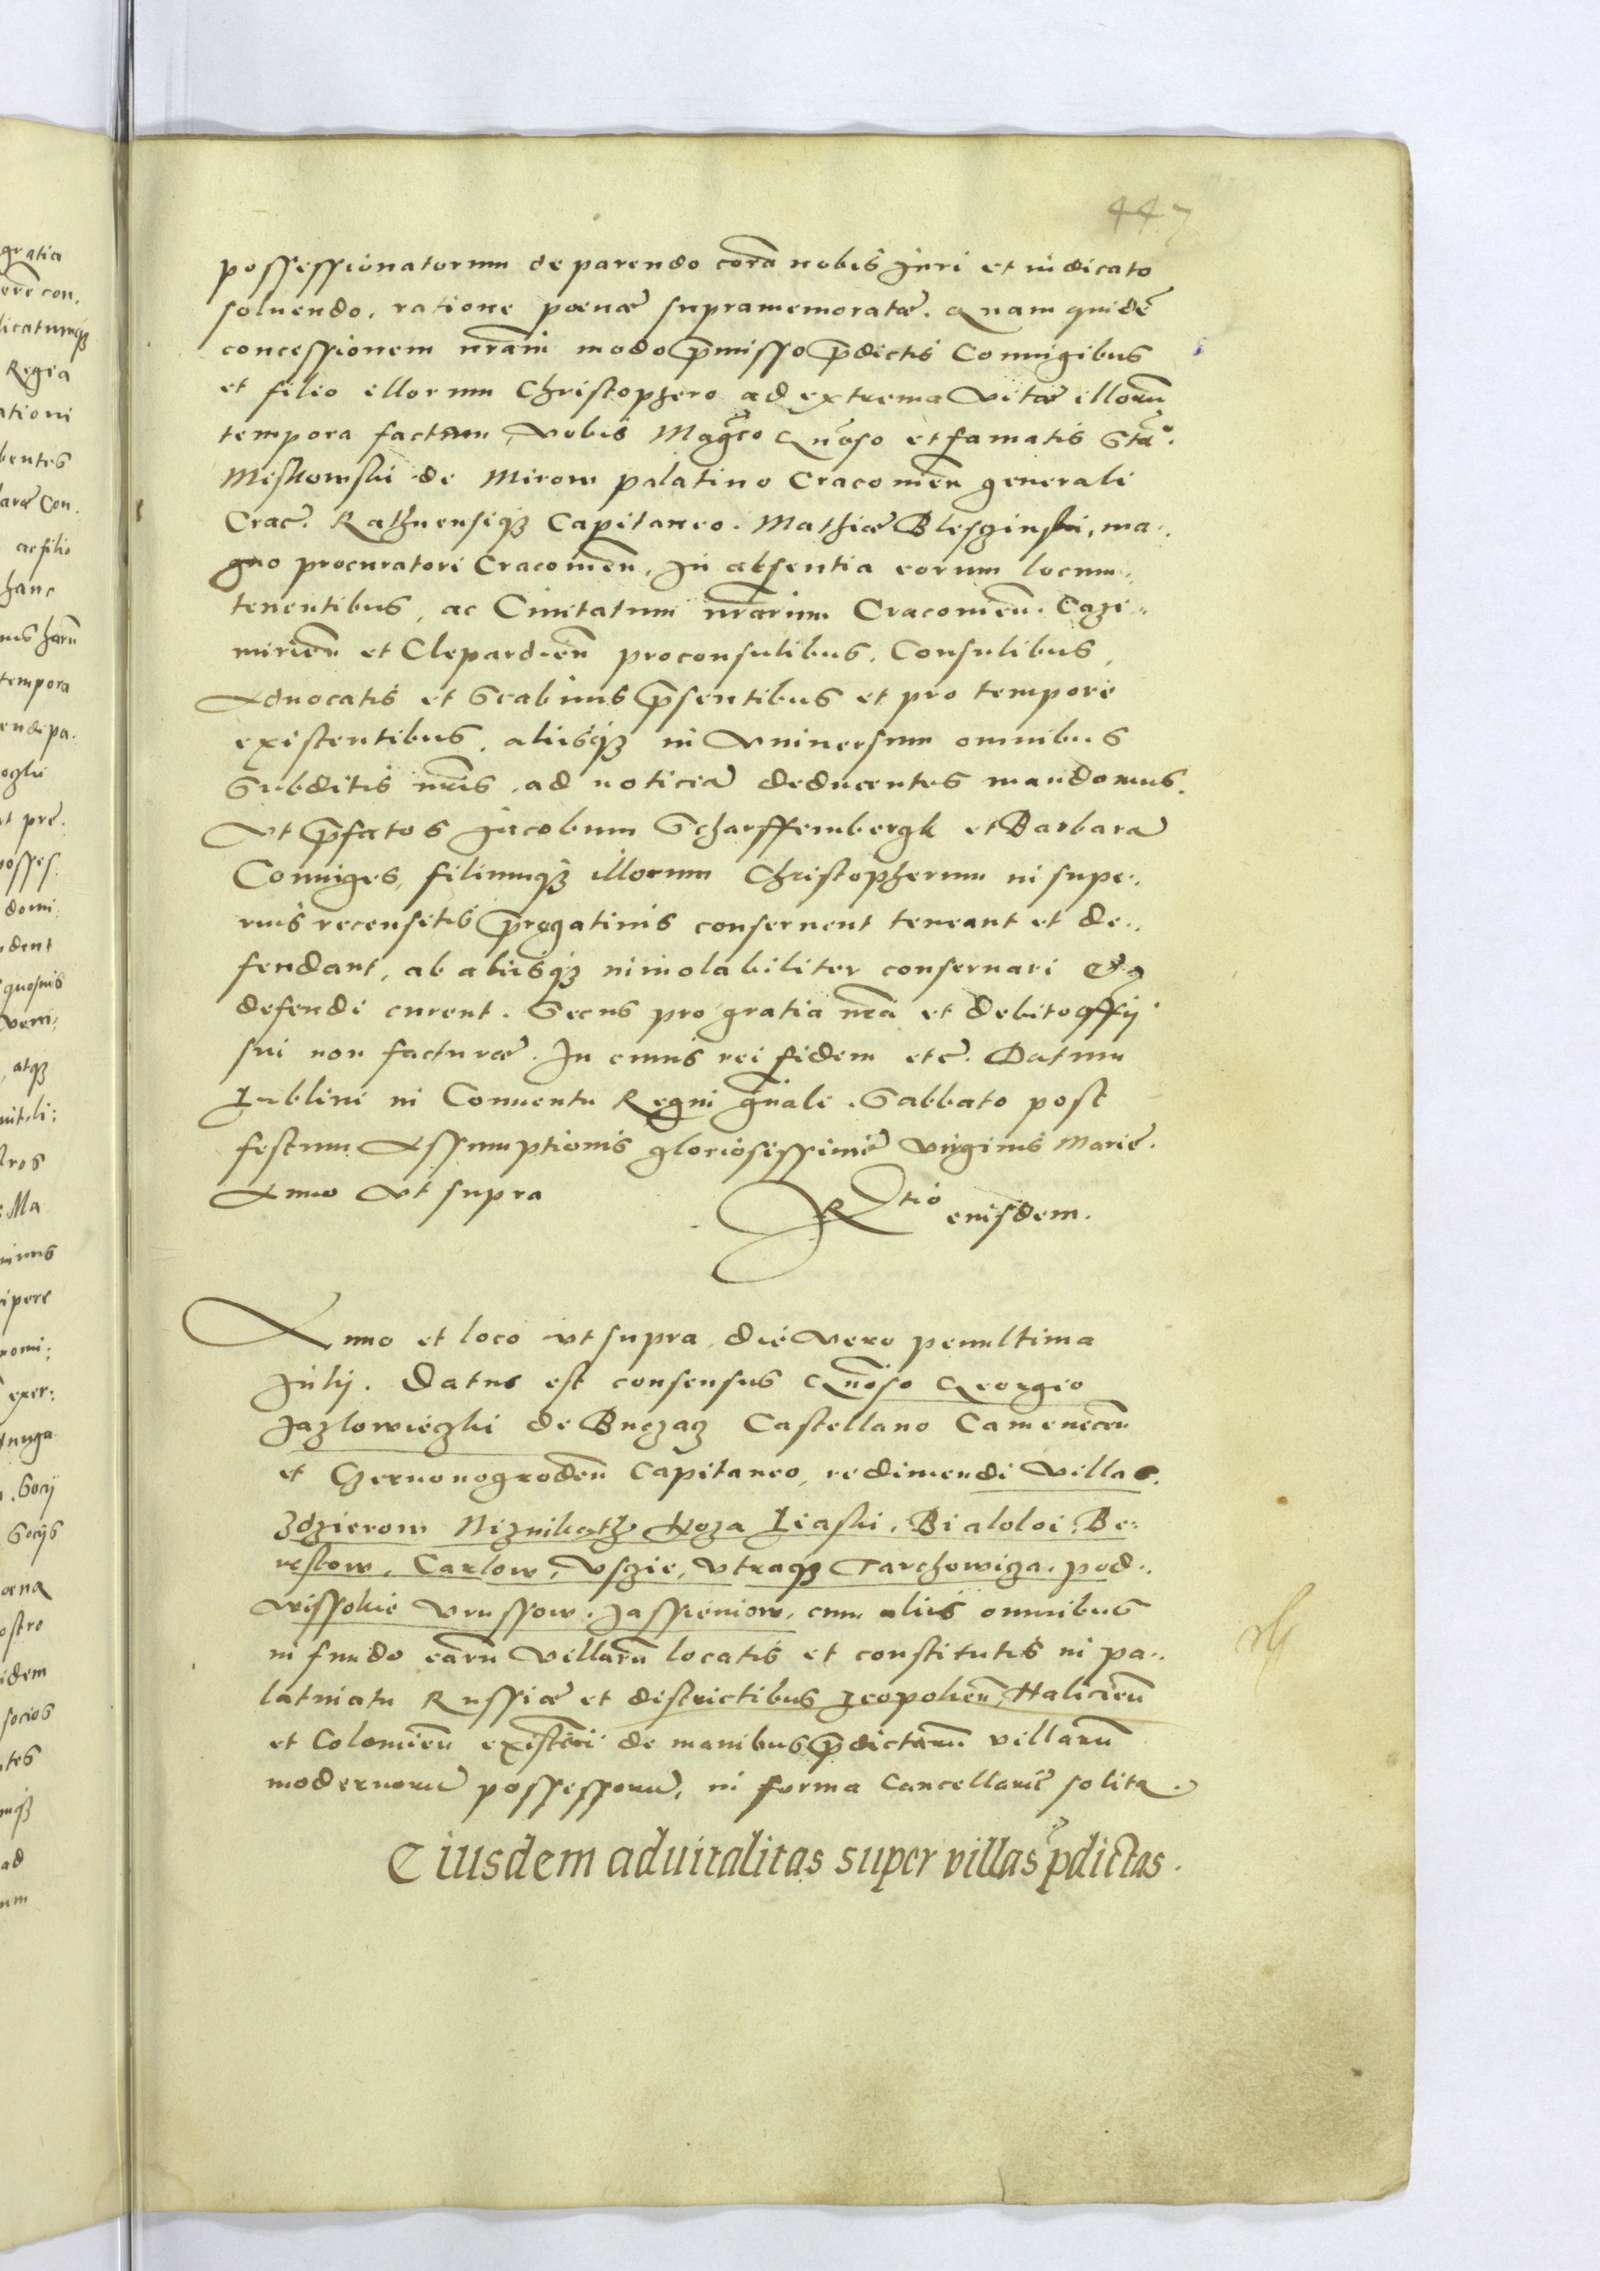 447
possessionatorum de parendo corā nobis Juri et iudicato
soluendo, ratione poenæ supramemoratæ. Quam quidē
concessionem nr̄am modo p̄misso p̄dictis Coniugibus
et filio illorum Christophero ad extrema vitæ illorū
tempora factam, vobis Mag̃co Gn̄oso et famatis Sta°.
Miskowski de Mirow palatino Cracouien̄ generali
Crac̄. Rathnensiq₃ Capitaneo. Mathiæ Blesginski, ma-
gno procuratori Cracouien̄, in absentia eorum locum-
tenentibus, ac Ciuitatum nr̄arum Cracouien̄. Cazi-
mirien̄ et Clepardien̄ proconsulibus, Consulibus,
Aduocatis et Scabinis p̄sentibus et pro tempore
existentibus, alijsq₃ in vniuersum omnibus
Subditis nr̄is, ad noticiā deducentes mandamus.
Vt p̄fatos Jacobum Scharffembergk et Barbarā
Coniuges, filiumq₃ illorum Christopherum in supe-
rius recensitis p̄rogatiuis conseruent teneant et de-
fendant, ab alijsq₃ inuiolabiliter conseruari et
defendi curent. Secus pro gratia nr̄a et debito offij
sui non facturæ. In cuius rei fidem etc̄. Datum
Lublini in Conuentu Regni gn̄ali. Sabbato post
festum Assumptionis gloriosissimē virginis Mariē.
Anno vt supra
R̄tio
eiusdem.
Anno et loco vt supra, die vero penultima
Julij. Datus est consensus Gn̄oso Georgio
Jazlowieczki de Buczacz Castellano Camenecen̄
et Czeruonogroden̄ Capitaneo, redimendi villas.
Zdzierow Koza Liaski, Bialoloi, Be-
restow, Carlow, Vsczie, Vtraq₃ Tarchowiza. pod-
wissokie Vrussow. Jassieniow, cum alijs omnibus
in fundo earū villarū locatis et constitutis in pa-
latinatu Russiæ et districtibus Leopolien̄, Halicien̄
et Colomien̄ existen̄ de manibus p̄dictarū villarū
modernorū possessorū, in forma Cancellariē solita.
Eiusdem aduitalitas super villas p̄dictas.